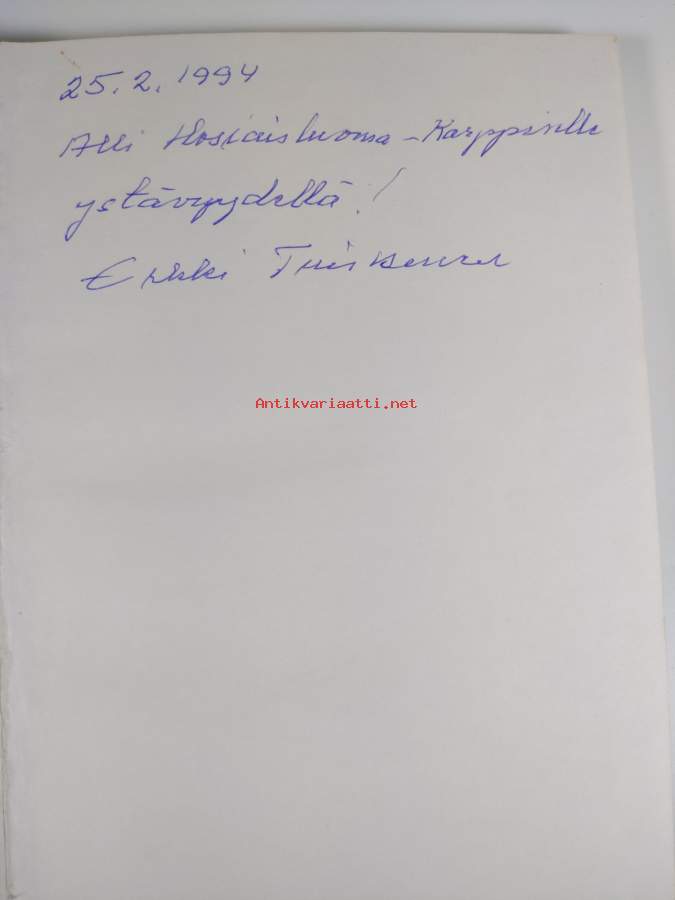 25.2.1994
Alli Hosiaisluoma-Karppiselle
ystävyydellä!
Erkki
Antikvariaatti.net